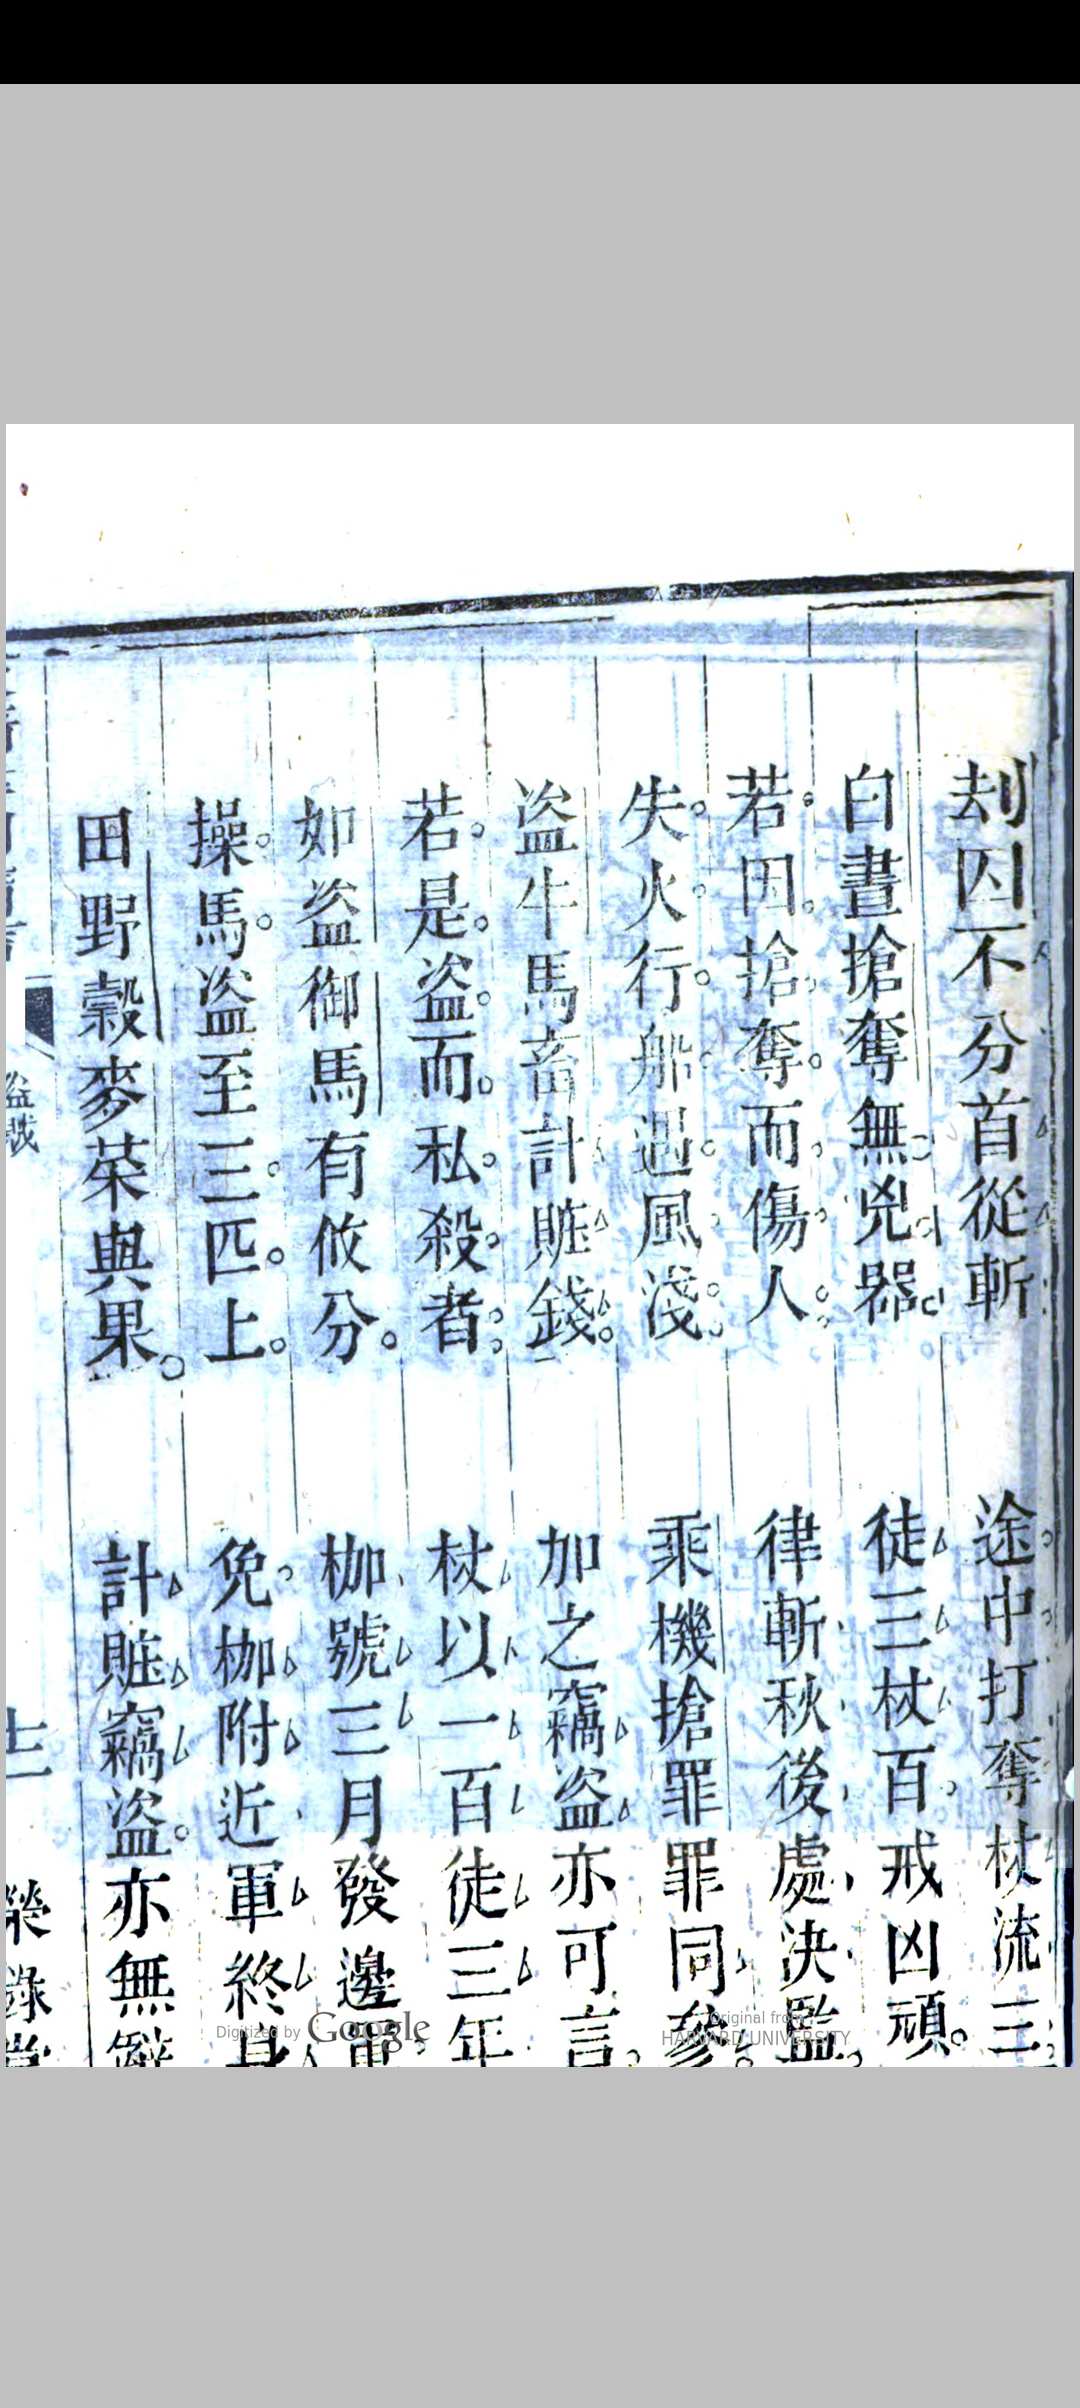 刦囚不分首從斬　途中打奪杖流三
白晝搶奪無兇器　徒三杖百戒凶頑
若因搶奪而傷人　律斬秋後處決監
失火行船遇風淺　乘機搶罪罪同參
盜牛馬畜計賍錢　加之竊盜亦可言
若是盜而私殺者　杖以一百徒三年
如盜御馬有攸分　枷號三月發邊
操馬盜至三匹上　免枷附近軍終身
田野穀麥菜與果　計賍竊盜亦無
盜賊
士
榮錄堂
Digitized by Google
Original from
HARVARD UNIVERSITY